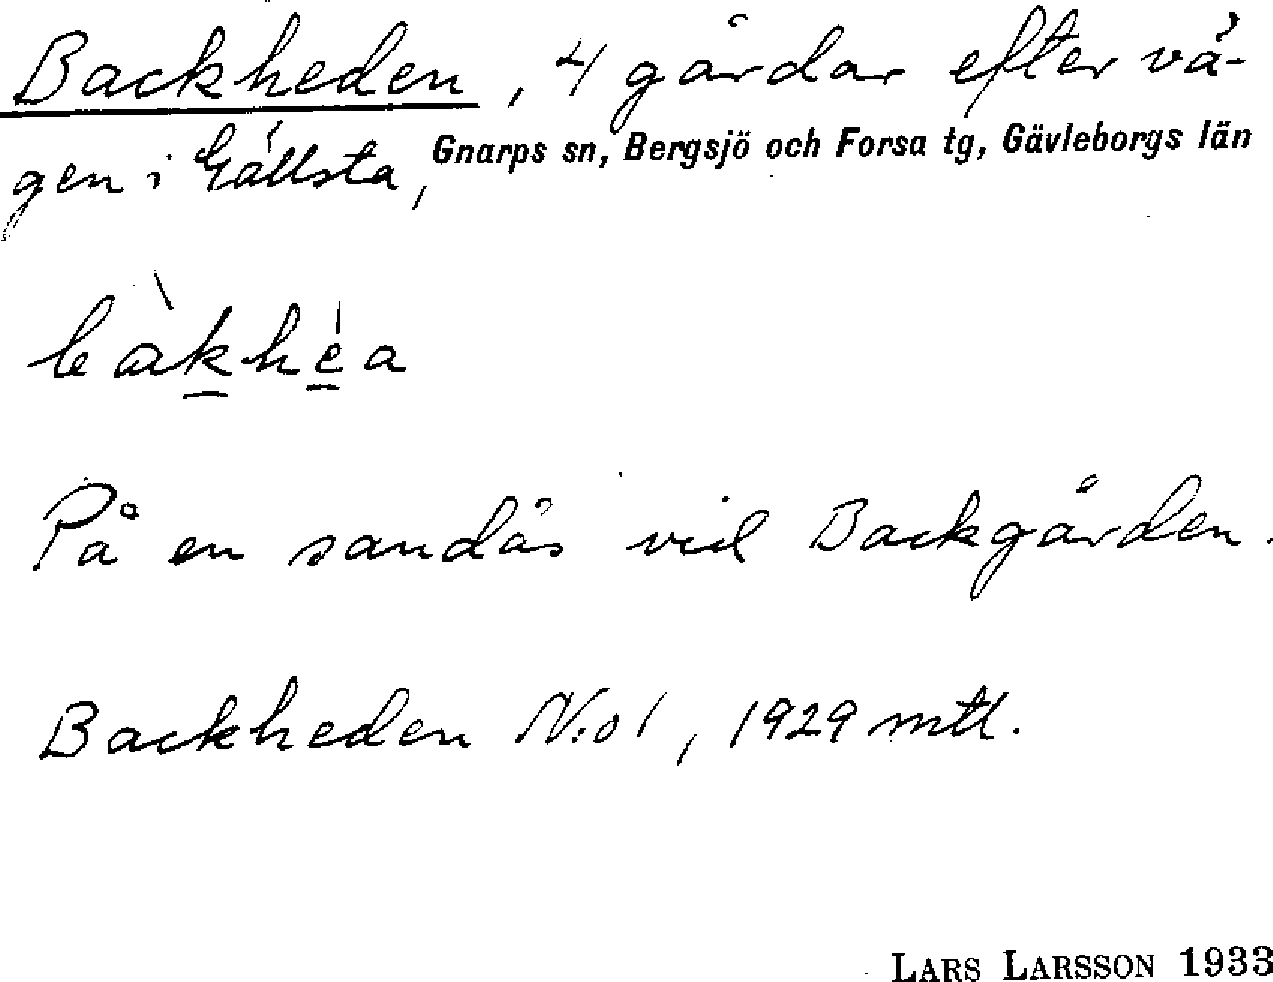 Backheden, 4 gårdar efter vä-
gen i Gällsta, Gnarps sn, Bergsjö och Forsa tg, Gävleborgs län
bàkhéa
På en sandås vid Backgården.
Backheden N:o 1, 1929 mtl.
LARS LARSSON 1933